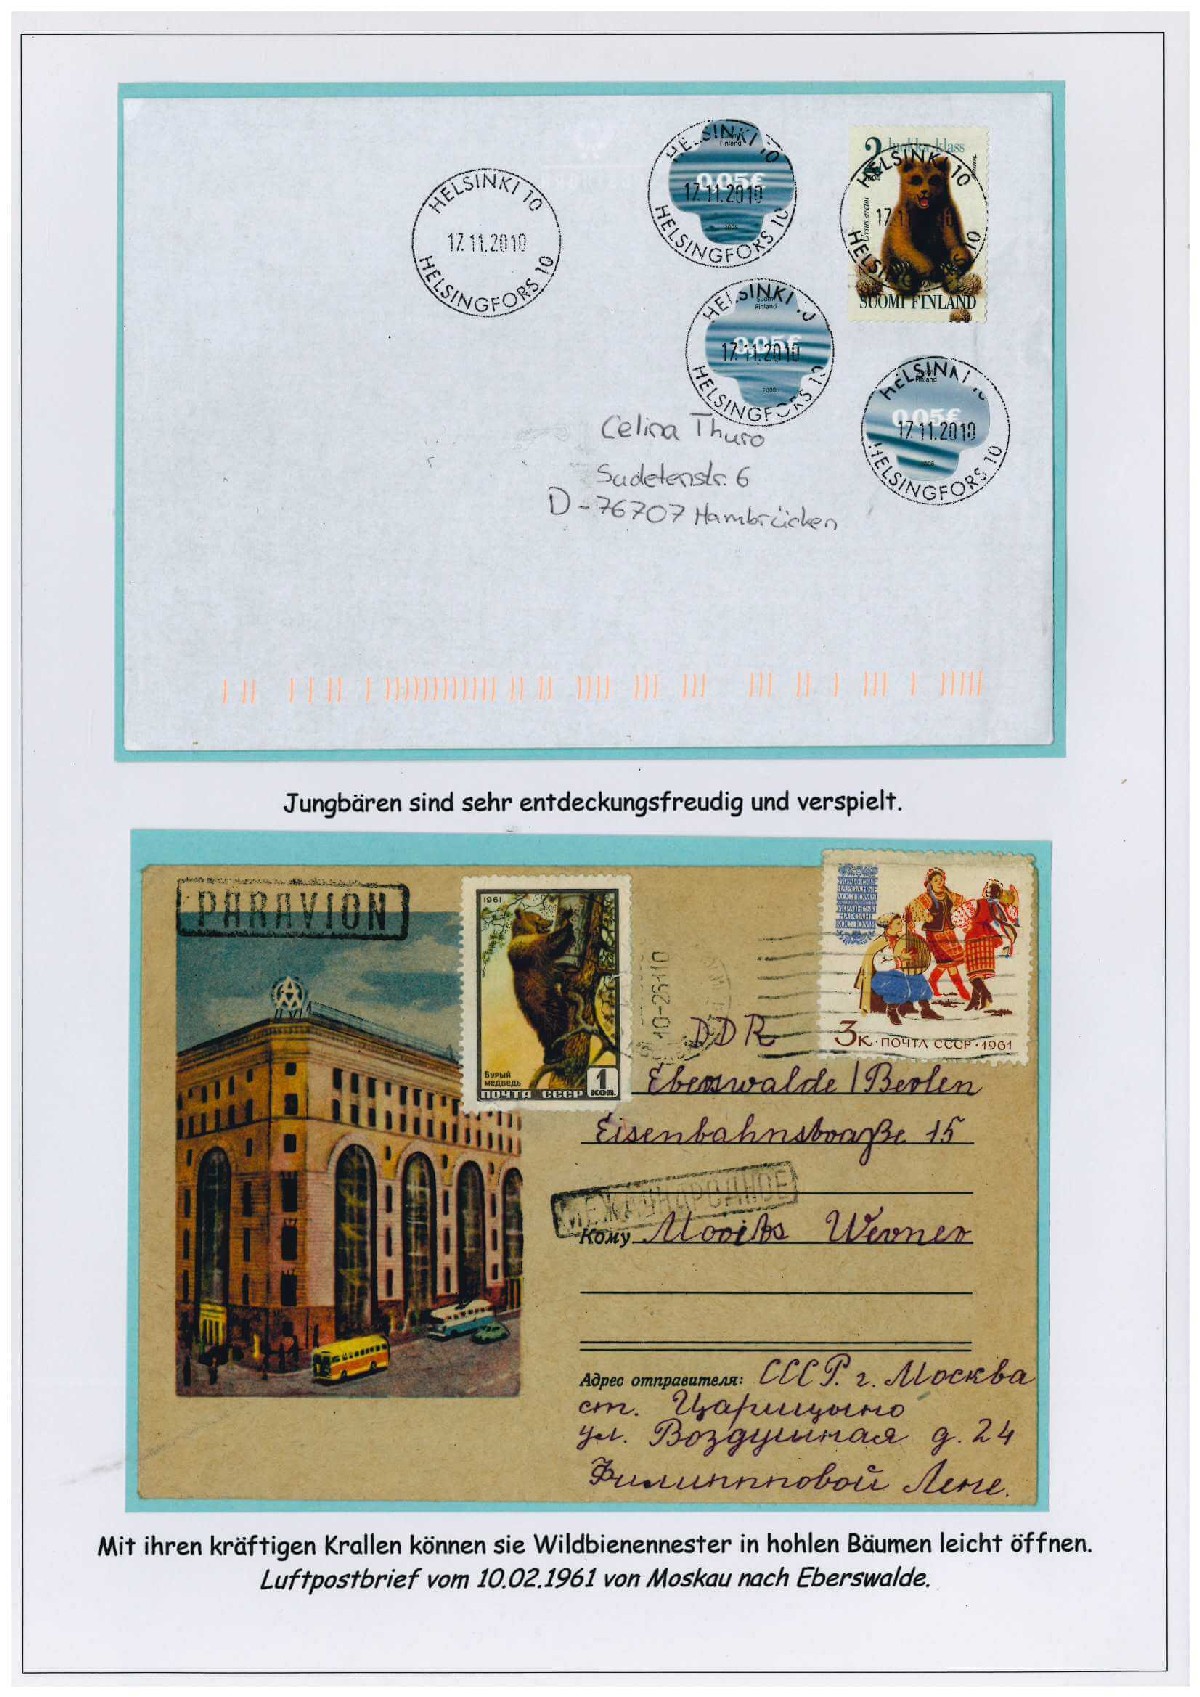 HELSINKI 10
17.11.2010
HELSINGFORS 10
HELSINKI 10
Finland
0,05€
17.11.2010
HELSINGFORS 10
2 luokka klass
HELSINKI 10
SUOMI FINLAND
HELSINKI 10
Finland
0,05€
17.11.2010
HELSINGFORS 10
HELSINKI 10
0,05€
17.11.2010
HELSINGFORS 10
Celina Thuro
Sudetenstr. 6
D-76707 Hambrücken
Jungbären sind sehr entdeckungsfreudig und verspielt.
PAR AVION
1961
Бурый
медведь
1
КОП.
ПОЧТА СССР
3к·ПОЧТА СССР·1961
DDR
Eberswalde/Berlin
Eisenbahnstraße 15
МЕЖДУНАРОДНОЕ
Кому Werner
Адрес отправителя: СССР. г. Москва
ст. Царицыно
ул. Воздушная д. 24
Филипповой Лене.
Mit ihren kräftigen Krallen können sie Wildbienennester in hohlen Bäumen leicht öffnen.
Luftpostbrief vom 10.02.1961 von Moskau nach Eberswalde.